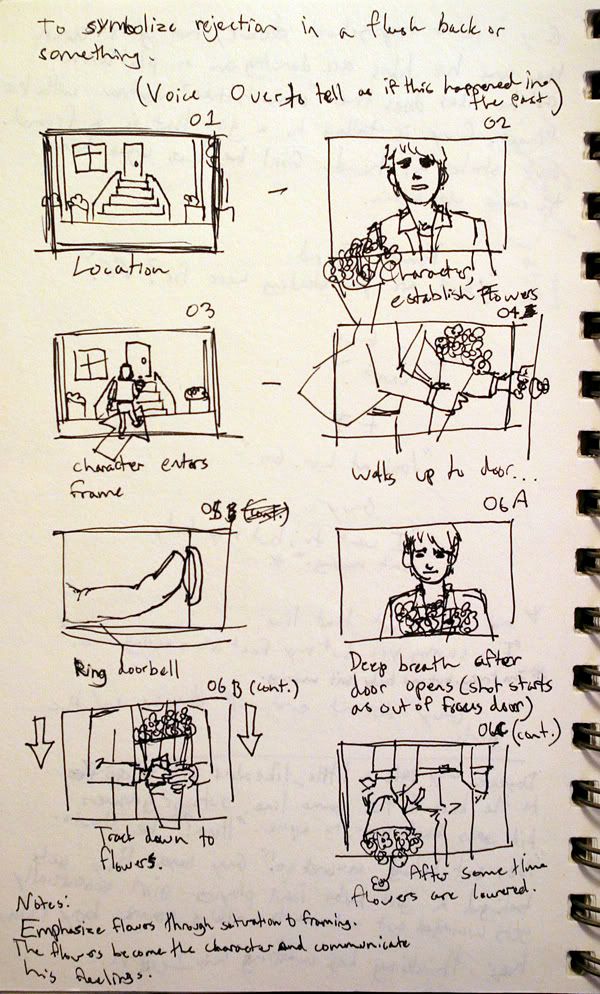 To symbolize rejection in a flash back or
something.
(Voice Over to tell as if this happened in
the past)
01
02
Location
Character,
establish Flowers
03
04
character enters
frame
Walks up to door...
05
(cont.)
06A
Ring doorbell
Deep breath after
door opens (shot starts
as out of focus door)
06B (cont.)
06C (cont.)
Track down to
flowers.
After some time
flowers are lowered.
Notes:
Emphasize flowers through saturation & framing.
The flowers become the character and communicate
his feelings.